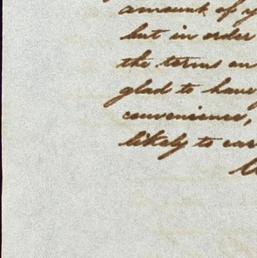 amount of
but in order
the terms
glad to have
convenience,
likely to